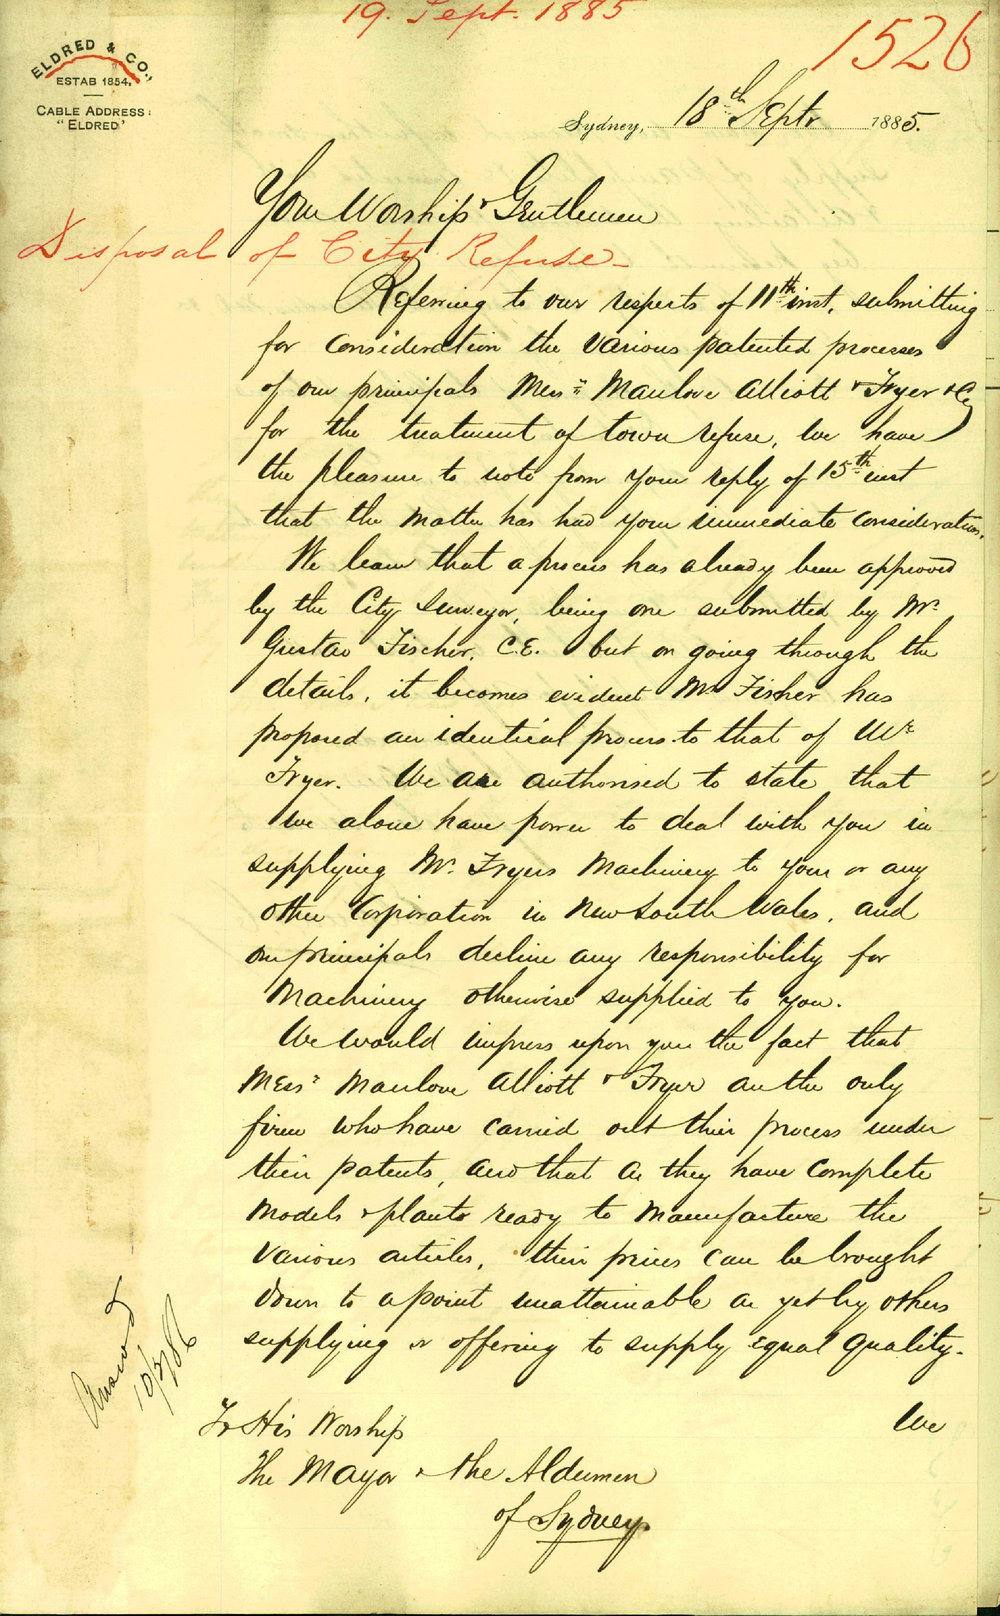 19. Sept. 1885
1526
ELDRED & CO.,
ESTAB 1854.
CABLE ADDRESS:
"ELDRED"
Sydney, 18th Septr 1885.
Your Worship & Gentlemen
Disposal of City Refuse
Referring to our respects of 11th inst. submitting
for consideration the various patented processes
of our principals Messrs Manlove Alliott & Fryer & Co
for the treatment of town refuse, we have
the pleasure to note from your reply of 15th inst
that the matter has had your immediate consideration.
We learn that a process has already been approved
by the City Surveyor, being one submitted by Mr.
Gustav Fischer, C.E. but on going through the
details, it becomes evident Mr Fischer has
proposed an identical process to that of Mr
Fryer. We are authorised to state that
we alone have power to deal with you in
supplying Mr. Fryers Machinery to your or any
other Corporation in New South Wales, and
our principals decline any responsibility for
Machinery otherwise supplied to you.
We would impress upon you the fact that
Messrs Manlove Alliott & Fryer are the only
firm who have carried out their process under
their patents, and that as they have complete
Models & plants ready to manufacture the
various articles, their prices can be brought
down to a point unattainable as yet by others
supplying or offering to supply equal quality.
We
To His Worship
The Mayor & the Aldermen
of Sydney.
Answd